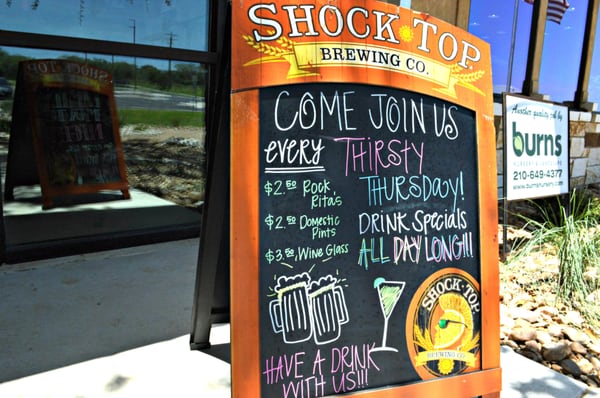 SHOCK TOP
BREWING CO.
COME JOIN US
every THIRSTY
THURSDAY!
$2.50 Rock Ritas
$2.50 Domestic Pints
$3.50 Wine Glass
DRINK SPECIALS
ALL DAY LONG!!!
HAVE A DRINK
WITH US!!!
SHOCK TOP
BREWING CO
Another quality job by
burns
210-649-4377